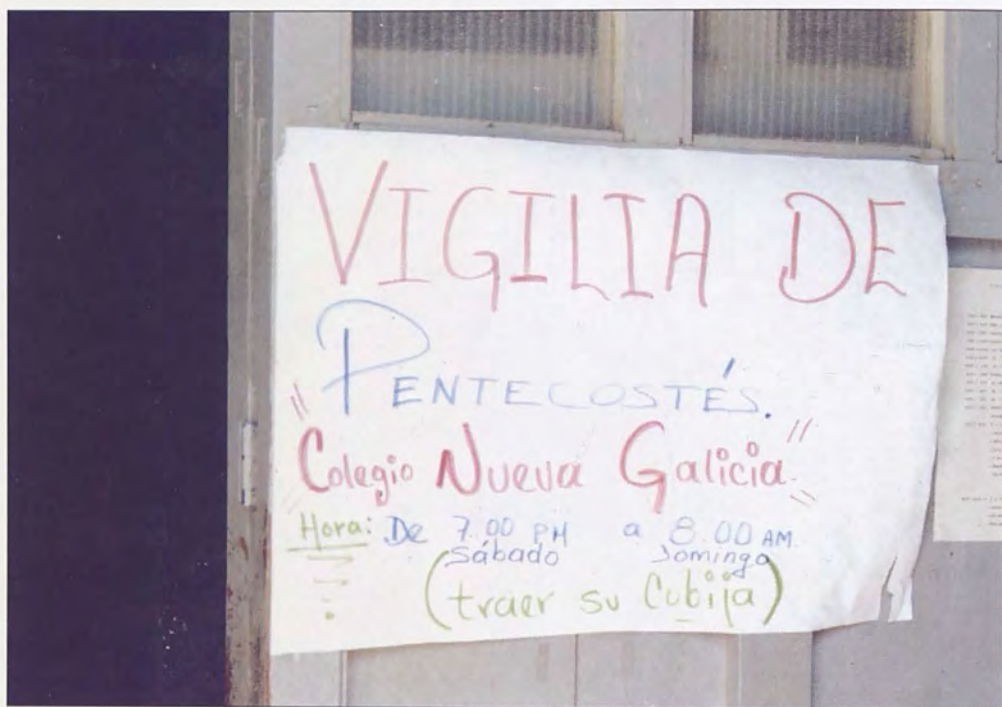 VIGILIA DE
PENTECOSTÉS.
"Colegio Nueva Galicia"
Hora: De 7.00 PM a 8.00 AM.
Sábado Domingo
(traer su Cubija)